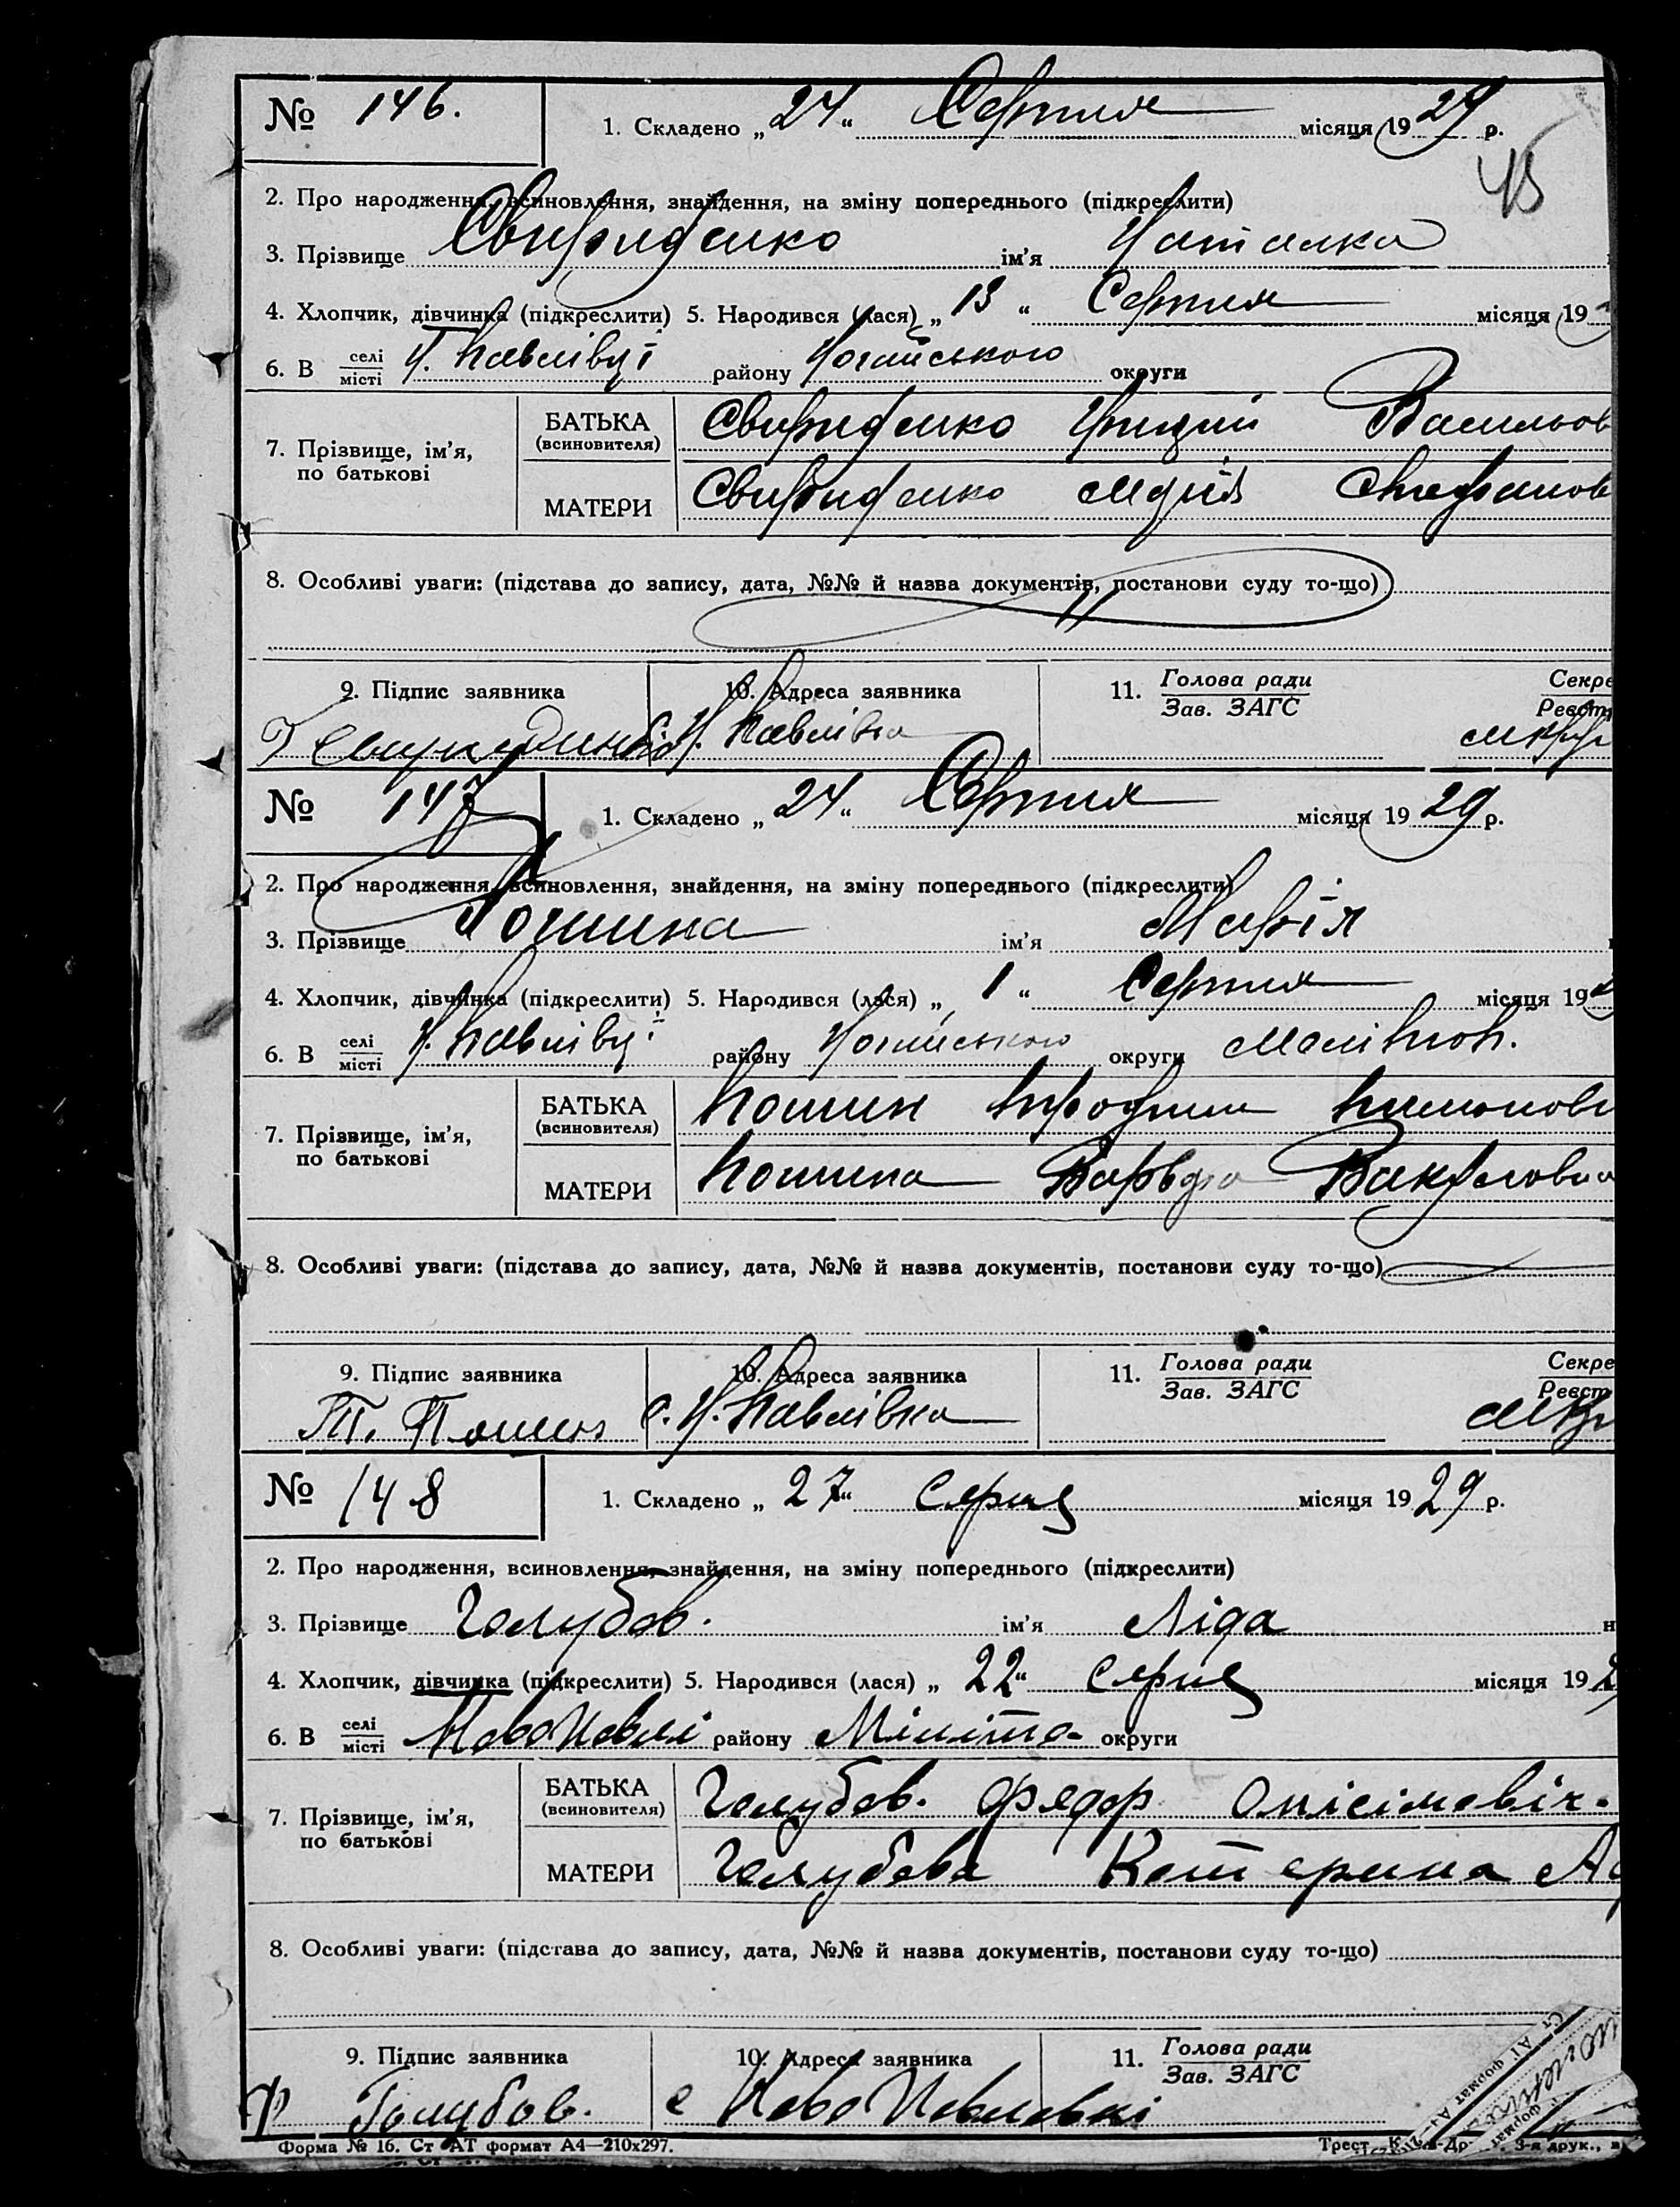 № 146. 1. Складено „24“ Серпня місяця 1929 р.
45
2. Про народження, всиновлення, знайдення, на зміну попереднього (підкреслити)
3. Прізвище Свириденко ім’я Наталка
4. Хлопчик, дівчинка (підкреслити) 5. Народився (лася) „13“ Серпня місяця 19
6. В селі місті Н. Павлівці району Ногайського округи
7. Прізвище, ім’я, по батькові
БАТЬКА (всиновителя) Свириденко Грицай Васильов
МАТЕРИ Свириденко Марія Стефанов
8. Особливі уваги: (підстава до запису, дата, №№ й назва документів, постанови суду то-що)
9. Підпис заявника 10. Адреса заявника 11. Голова ради Зав. ЗАГС Секре Реєст
Н. Павлівка
№ 147 1. Складено „24“ Серпня місяця 1929 р.
2. Про народження, всиновлення, знайдення, на зміну попереднього (підкреслити)
3. Прізвище Пошина ім’я Марія
4. Хлопчик, дівчинка (підкреслити) 5. Народився (лася) „1“ Серпня місяця 192
6. В селі місті Н. Павлівці району Ногайського округи Мелітоп.
7. Прізвище, ім’я, по батькові
БАТЬКА (всиновителя) Пошин Трофим
МАТЕРИ Пошина Варвара
8. Особливі уваги: (підстава до запису, дата, №№ й назва документів, постанови суду то-що)
9. Підпис заявника 10. Адреса заявника 11. Голова ради Зав. ЗАГС Секре Реєст
Т. Пошин с. Н. Павлівка
№ 148 1. Складено „27“ Серпня місяця 1929 р.
2. Про народження, всиновлення, знайдення, на зміну попереднього (підкреслити)
3. Прізвище Голубов. ім’я Ліда н
4. Хлопчик, дівчинка (підкреслити) 5. Народився (лася) „22“ Серпня місяця 192
6. В селі місті НовоПавлі району Міліто- округи
7. Прізвище, ім’я, по батькові
БАТЬКА (всиновителя) Голубов. Фядор Онісімовіч.
МАТЕРИ Голубова Катерина А
8. Особливі уваги: (підстава до запису, дата, №№ й назва документів, постанови суду то-що)
9. Підпис заявника 10. Адреса заявника 11. Голова ради Зав. ЗАГС
Ф Голубов. с НовоПавловкі
Форма № 16. Ст АТ формат А4—210х297. Трест 3-я друк.,